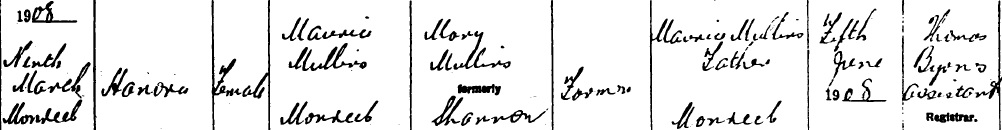 1908
Ninth
March
Mondeel
Hanora
Female
Maurice
Mullins
Mondeel
Mary
Mullins
formerly
Shannon
Farmer
Maurice Mullins
Father
Mondeel
Fifth
June
1908
Thomas
Byrns
assistant
Registrar.